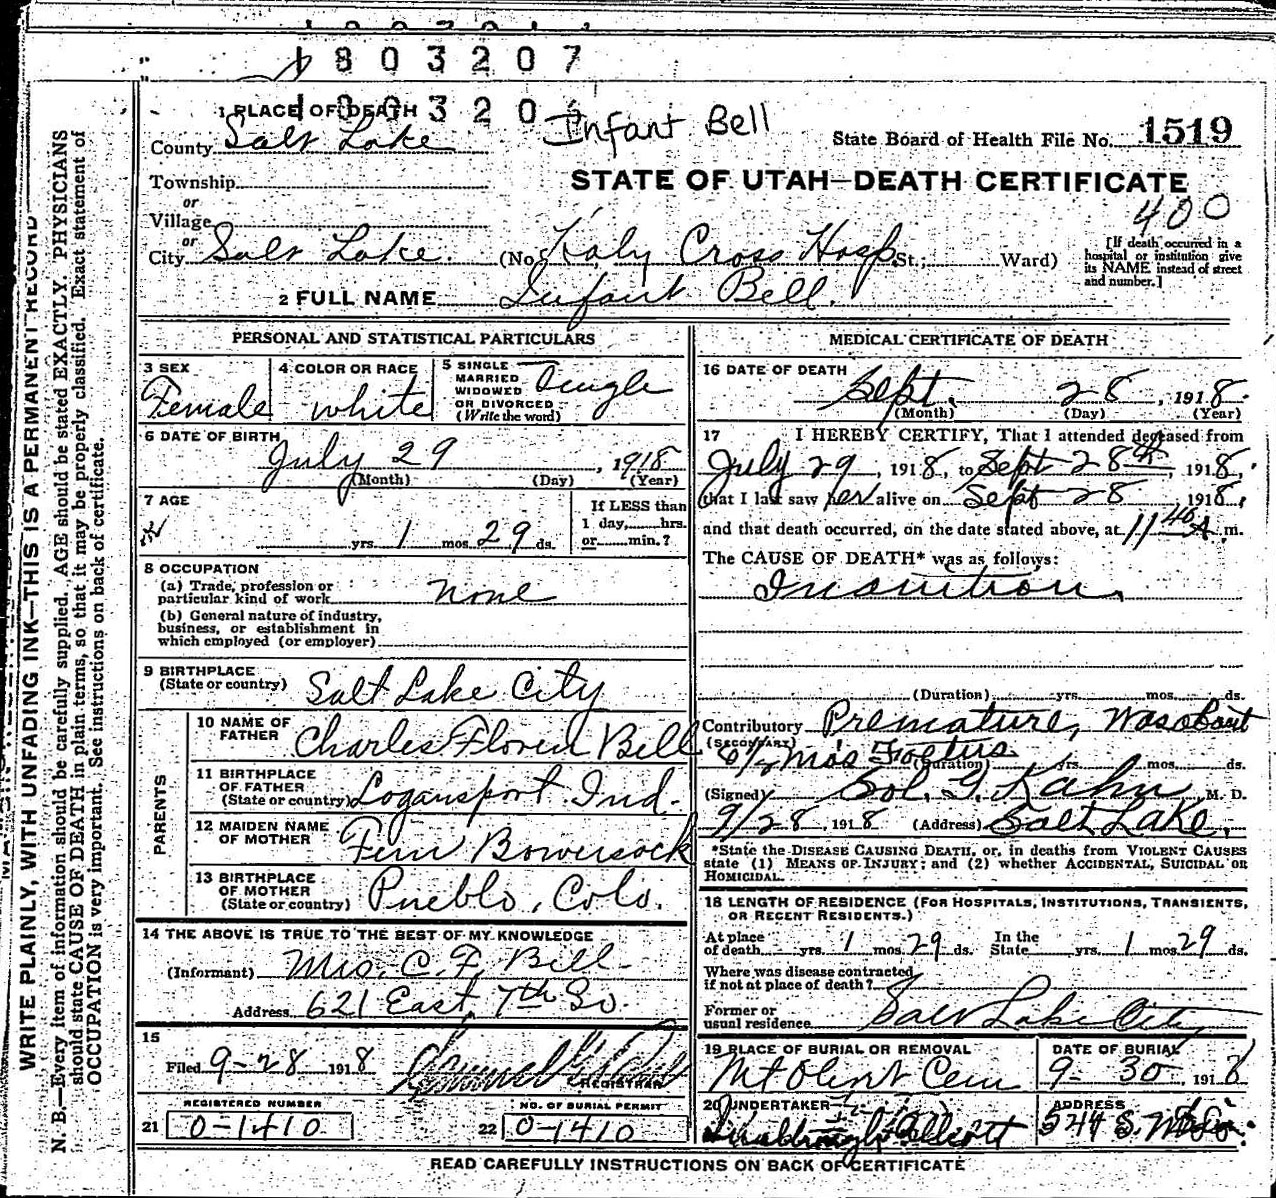 1803207
180320
1 PLACE OF DEATH
Infant Bell
County Salt Lake
State Board of Health File No. 1519
Township
or
STATE OF UTAH—DEATH CERTIFICATE
Village
400
or
City Salt Lake. (No. Holy Cross Hosp St.; Ward)
[If death occurred in a
hospital or institution give
its NAME instead of street
and number.]
2 FULL NAME Infant Bell.
PERSONAL AND STATISTICAL PARTICULARS
3 SEX
Female
4 COLOR OR RACE
white
5 SINGLE
MARRIED
WIDOWED
OR DIVORCED
(Write the word)
Single
6 DATE OF BIRTH
July 29, 1918
(Month) (Day) (Year)
7 AGE
yrs. 1 mos. 29 ds.
If LESS than
1 day, hrs.
or min.?
8 OCCUPATION
(a) Trade, profession or
particular kind of work none
(b) General nature of industry,
business, or establishment in
which employed (or employer)
9 BIRTHPLACE
(State or country) Salt Lake City
PARENTS
10 NAME OF
FATHER Charles Bell
11 BIRTHPLACE
OF FATHER
(State or country) Logansport Ind.
12 MAIDEN NAME
OF MOTHER Fern Bowersock
13 BIRTHPLACE
OF MOTHER
(State or country) Pueblo, Colo.
14 THE ABOVE IS TRUE TO THE BEST OF MY KNOWLEDGE
(Informant) Mrs. C. F. Bell
Address 621 East 7th So.
15
Filed 9-28 1918
REGISTRAR
REGISTERED NUMBER
21 0-1410
NO. OF BURIAL PERMIT
22 0-1410
MEDICAL CERTIFICATE OF DEATH
16 DATE OF DEATH
Sept. 28, 1918
(Month) (Day) (Year)
17 I HEREBY CERTIFY, That I attended deceased from
July 29, 1918, to Sept 28th, 1918,
that I last saw her alive on Sept 28, 1918,
and that death occurred, on the date stated above, at 11 40 A. m.
The CAUSE OF DEATH* was as follows:
Inanition.
(Duration) yrs. mos. ds.
Contributory Premature, was about
(SECONDARY) 6 1/2 mos Foetus.
(Duration) yrs. mos. ds.
(Signed) Sol. G. Kahn, M. D.
9/28, 1918 (Address) Salt Lake.
*State the DISEASE CAUSING DEATH, or, in deaths from VIOLENT CAUSES
state (1) MEANS OF INJURY; and (2) whether ACCIDENTAL, SUICIDAL OR
HOMICIDAL.
18 LENGTH OF RESIDENCE (FOR HOSPITALS, INSTITUTIONS, TRANSIENTS,
OR RECENT RESIDENTS.)
At place
of death yrs. 1 mos. 29 ds.
In the
State yrs. 1 mos. 29 ds.
Where was disease contracted
if not at place of death?
Former or
usual residence Salt Lake City
19 PLACE OF BURIAL OR REMOVAL
Mt Olivet Cem
DATE OF BURIAL
9-30, 1918
20 UNDERTAKER
ADDRESS
READ CAREFULLY INSTRUCTIONS ON BACK OF CERTIFICATE
WRITE PLAINLY, WITH UNFADING INK—THIS IS A PERMANENT RECORD
N. B.—Every item of information should be carefully supplied. AGE should be stated EXACTLY. PHYSICIANS
should state CAUSE OF DEATH in plain terms, so that it may be properly classified. Exact statement of
OCCUPATION is very important. See instructions on back of certificate.